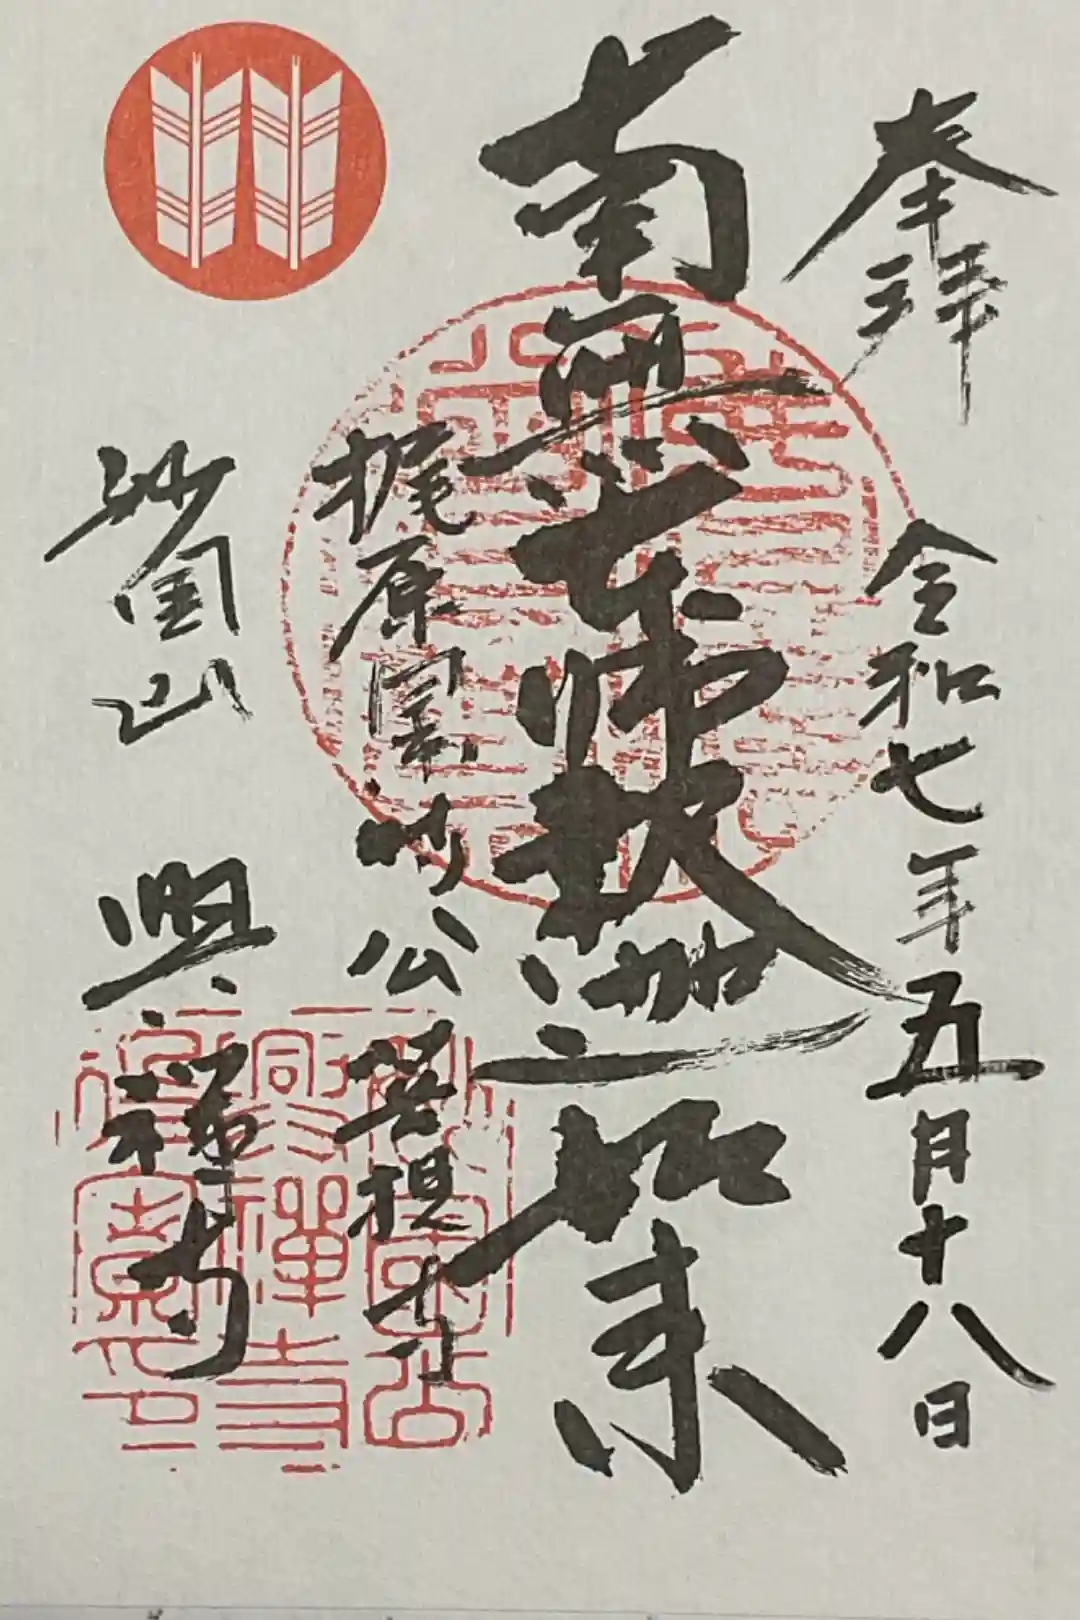 奉拝
令和七年五月十八日
南無本師釈迦如来
梶原景時公菩提寺
山 興禅寺